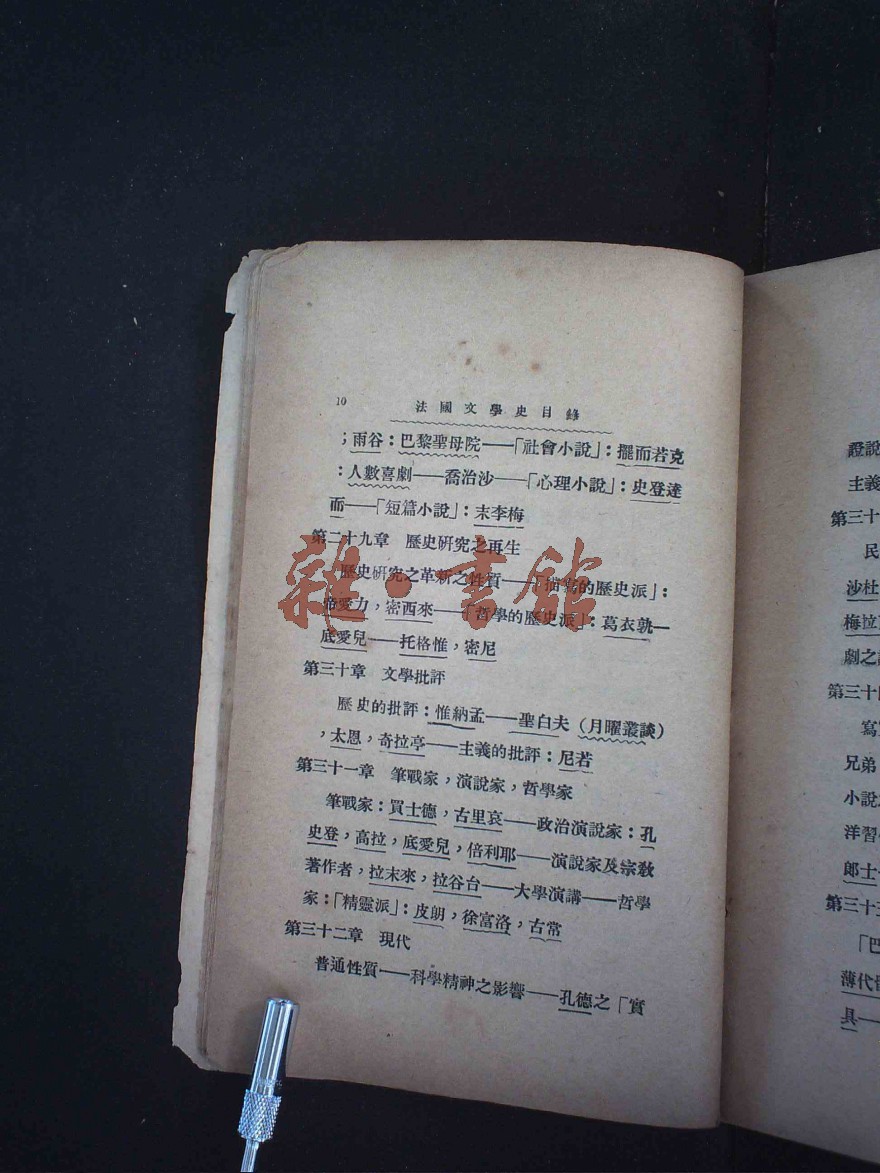 10
法國文學史目錄
；雨谷：巴黎聖母院——「社會小說」：擺而若克
：人數喜劇——喬治沙——「心理小說」：史登達
而——「短篇小說」：末李梅
第二十九章　歷史硏究之再生
歷史硏究之革新之性質——「描寫的歷史派」：
帝愛力，密西來——「哲學的歷史派」：葛衣孰—
底愛兒——托格惟，密尼
第三十章　文學批評
歷史的批評：惟納孟——聖白夫（月曜叢談）
，太恩，奇拉亭——主義的批評：尼若
第三十一章　筆戰家，演說家，哲學家
筆戰家：買士德，古里哀——政治演說家：孔
史登，高拉，底愛兒，倍利耶——演說家及宗敎
著作者，拉末來，拉谷台——大學演講——哲學
家：「精靈派」：皮朗，徐富洛，古常
第三十二章　現代
普通性質——科學精神之影響——孔德之「實
雜·書館
證說
主義
第三十
民
沙杜
梅拉
劇之
第三十
寫
兄弟
小說
洋習
郎士
第三十
「巴
薄代
具—